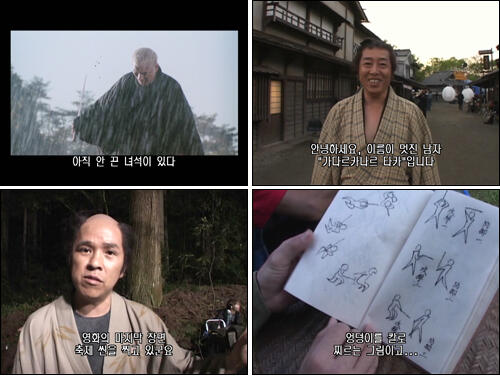 아직 안 끈 녀석이 있다
안녕하세요, 이름이 멋진 남자
"가다르카나르 타카"입니다
영화의 마지막 장면
축제 씬을 찍고 있군요
엉덩이를 칼로
찌르는 그림이고...